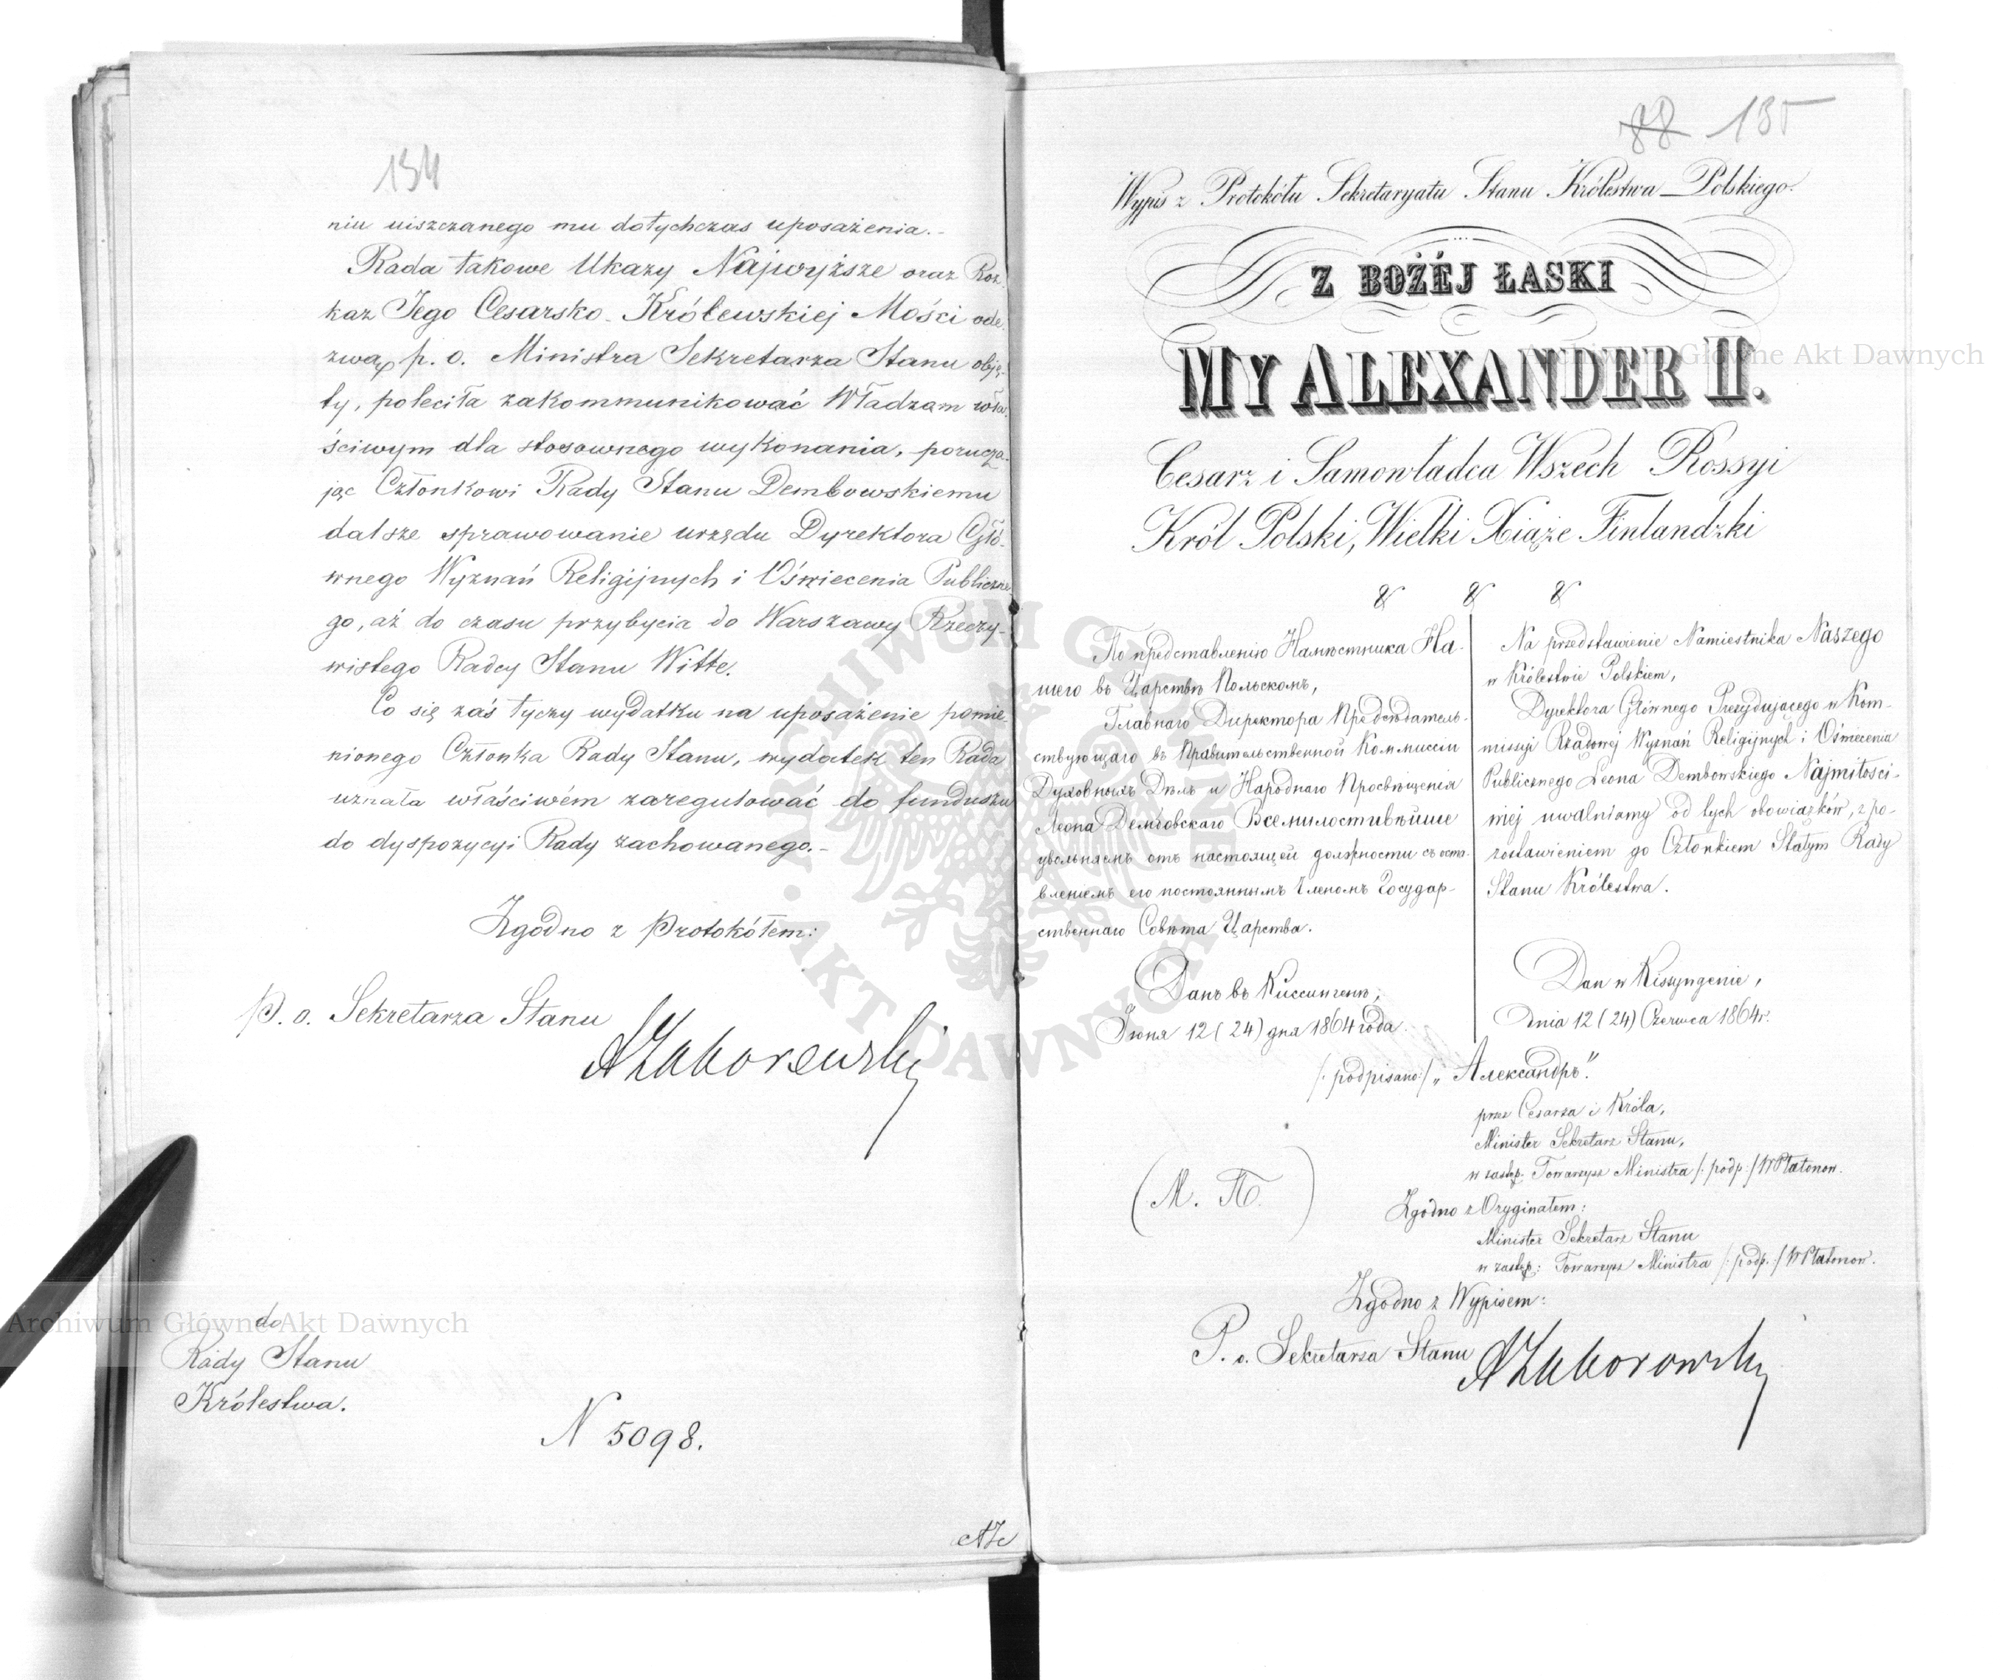 134
niu uiszczanego mu dotychczas uposażenia.-
Rada takowe Ukazy Najwyższe oraz Roz-
kaz Jego Cesarsko-Królewskiej Mości ode-
zwą p. o. Ministra Sekretarza Stanu obję-
ty, poleciła zakommunikować Władzom wła-
ściwym dla stosownego wykonania, porucza-
jąc Członkowi Rady Stanu Dembowskiemu
dalsze sprawowanie urzędu Dyrektora Głó-
wnego Wyznań Religijnych i Oświecenia Publiczne-
go, aż do czasu przybycia do Warszawy Rzeczy-
wistego Radcy Stanu Witte.
Co się zaś tyczy wydatku na uposażenie pomie-
nionego Członka Rady Stanu, wydatek ten Rada
uznała właściwém zaregulować do funduszu
do dyspozycyi Rady zachowanego.-
Zgodno z Protokółem:
P. o. Sekretarza Stanu
AZaborowski
do
Rady Stanu
Królestwa.
N 5098.
88 135
Wypis z Protokółu Sekretaryatu Stanu Królestwa Polskiego.
Z BOŻÉJ ŁASKI
MY ALEXANDER II.
Cesarz i Samowładca Wszech Rossyi
Król Polski, Wielki Xiąże Finlandzki
& & &
По представленію Намѣстника На-
шего въ Царствѣ Польскомъ,
Главнаго Директора Предсѣдатель-
ствующаго въ Правительственной Коммиссіи
Духовныхъ Дѣлъ и Народнаго Просвѣщенія
Леона Дембовскаго Всемилостивѣйше
увольняемъ отъ настоящей должности съ оста-
вленіемъ его постояннымъ Членомъ Государ-
ственнаго Совѣта Царства.
Данъ въ Киссингенѣ,
Іюня 12 (24) дня 1864 года.
Na przedstawienie Namiestnika Naszego
w Królestwie Polskiem,
Dyrektora Głównego Prezydującego w Kom-
missyi Rządowej Wyznań Religijnych i Oświecenia
Publicznego Leona Dembowskiego Najmiłości-
wiej uwalniamy od tych obowiązków, z po-
zostawieniem go Członkiem Stałym Rady
Stanu Królestwa.
Dan w Kissyngenie,
Dnia 12 (24) Czerwca 1864 r.
/: podpisano:/ „Александръ".
przez Cesarza i Króla,
Minister Sekretarz Stanu,
w zastęp. Towarzysz Ministra /: podp:/ W Płatonow.
(М. П.)
Zgodno z Oryginałem:
Minister Sekretarz Stanu
w zastęp: Towarzysz Ministra /: podp.:/ W Płatonow.
Zgodno z Wypisem:
P. o. Sekretarza Stanu AZaborowski
Archiwum Główne Akt Dawnych
Archiwum Główne Akt Dawnych
ARCHIWUM GŁÓWNE AKT DAWNYCH